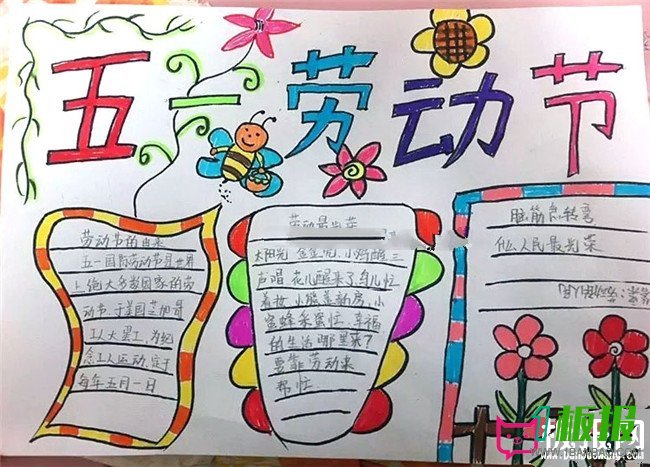 五一劳动节
劳动节的由来
五一国际劳动节是世界
上绝大多数国家的劳
动节,于美国芝加哥
工人大罢工,为纪
念工人运动,定于
每年五月一日
劳动最光荣
太阳光 金金亮,小鸡醒三
声唱 花儿醒来了,鸟儿忙
着妆 小熊盖新房,小
蜜蜂采蜜忙,幸福
的生活哪里来了
要靠劳动来
帮忙
脑筋急转弯
什么人民最光荣
板报网